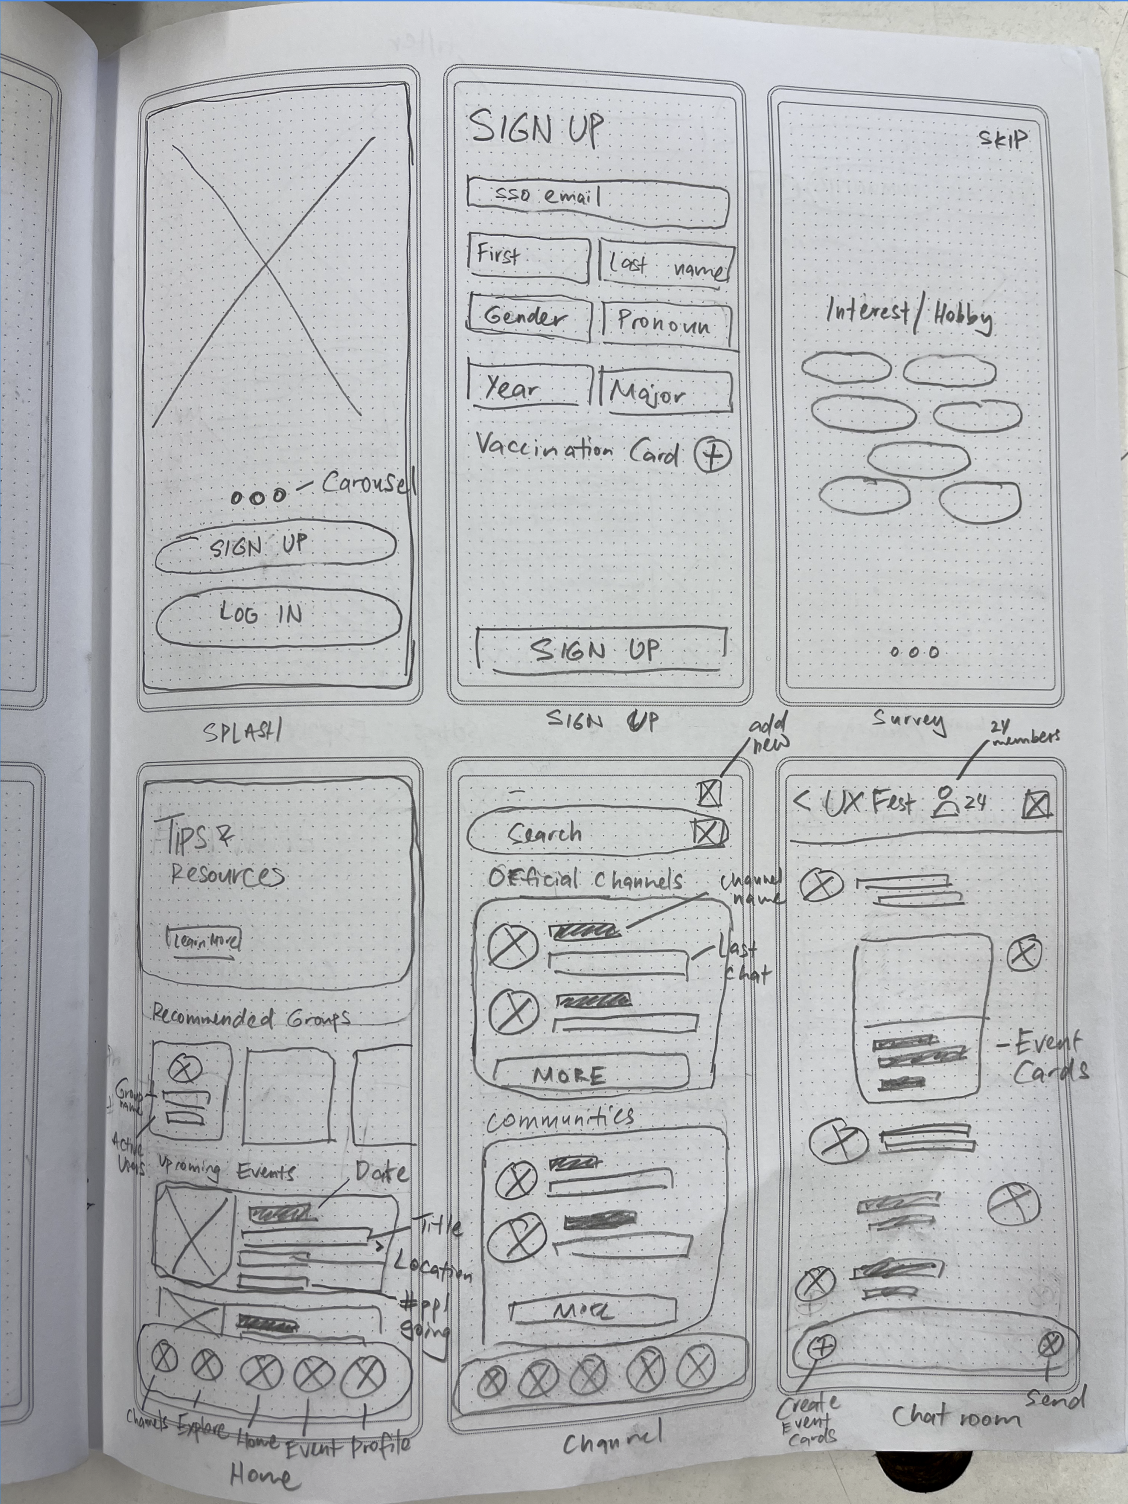 Carousel
SIGN UP
LOG IN
SPLASH
SIGN UP
sso email
First
Last name
Gender
Pronoun
Year
Major
Vaccination Card +
SIGN UP
SIGN UP
SKIP
Interest/Hobby
Survey
Tips &
Resources
Learn More
Recommended Groups
Group
name
Active
Users
Upcoming Events
Date
Title
Location
#ppl
going
Channels Explore Home Event Profile
Home
add
new
Search
Official Channels
Channel
name
Last
chat
MORE
Communities
MORE
Channel
24
members
< UX Fest 24
Event
Cards
+
Create
Event
Cards
Send
Chat room